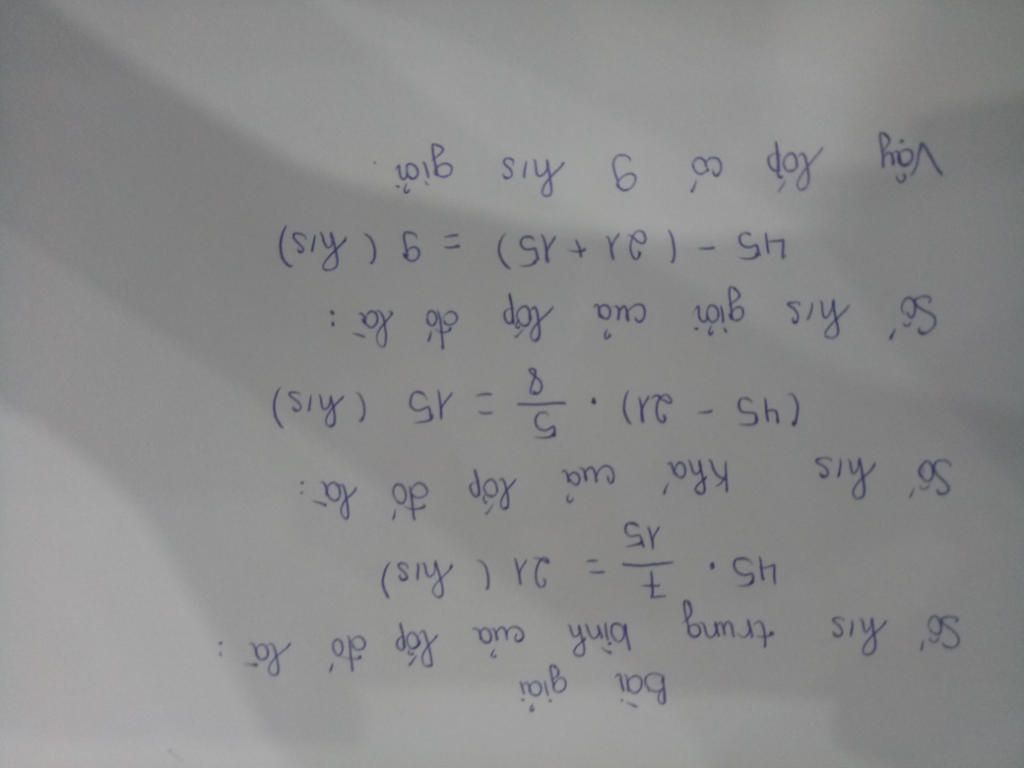 Bài giải
Số h/s trung bình của lớp đó là :
45 . 7/15 = 21 ( h/s)
Số h/s khá của lớp đó là :
(45 - 21) . 5/8 = 15 ( h/s)
Số h/s giỏi của lớp đó là :
45 - ( 21 + 15) = 9 ( h/s)
Vậy lớp có 9 h/s giỏi .